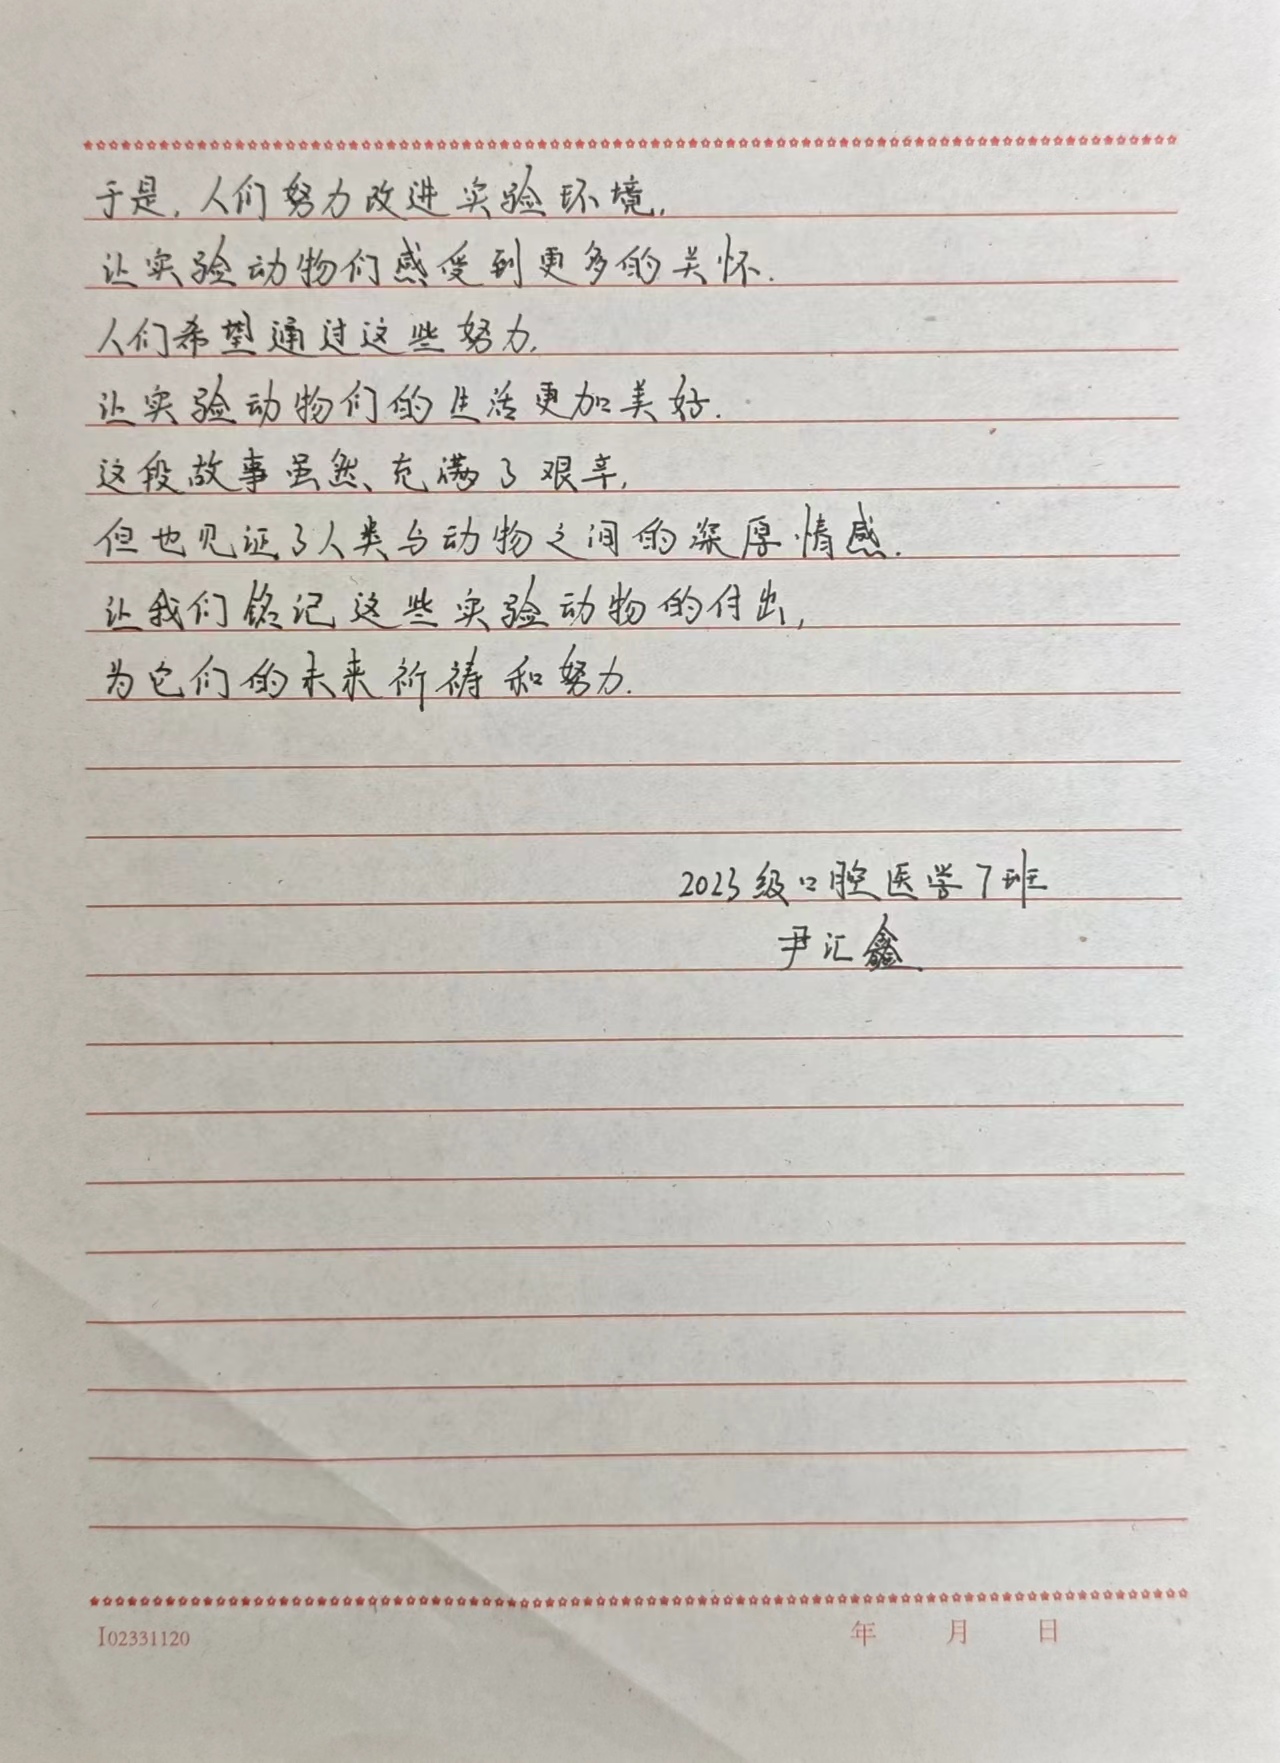 于是，人们努力改进实验环境，
让实验动物们感受到更多的关怀.
人们希望通过这些努力，
让实验动物们的生活更加美好.
这段故事虽然充满了艰辛，
但也见证了人类与动物之间的深厚情感.
让我们铭记这些实验动物的付出，
为它们的未来祈祷和努力.
2023级口腔医学7班
尹汇鑫
I02331120 年 月 日